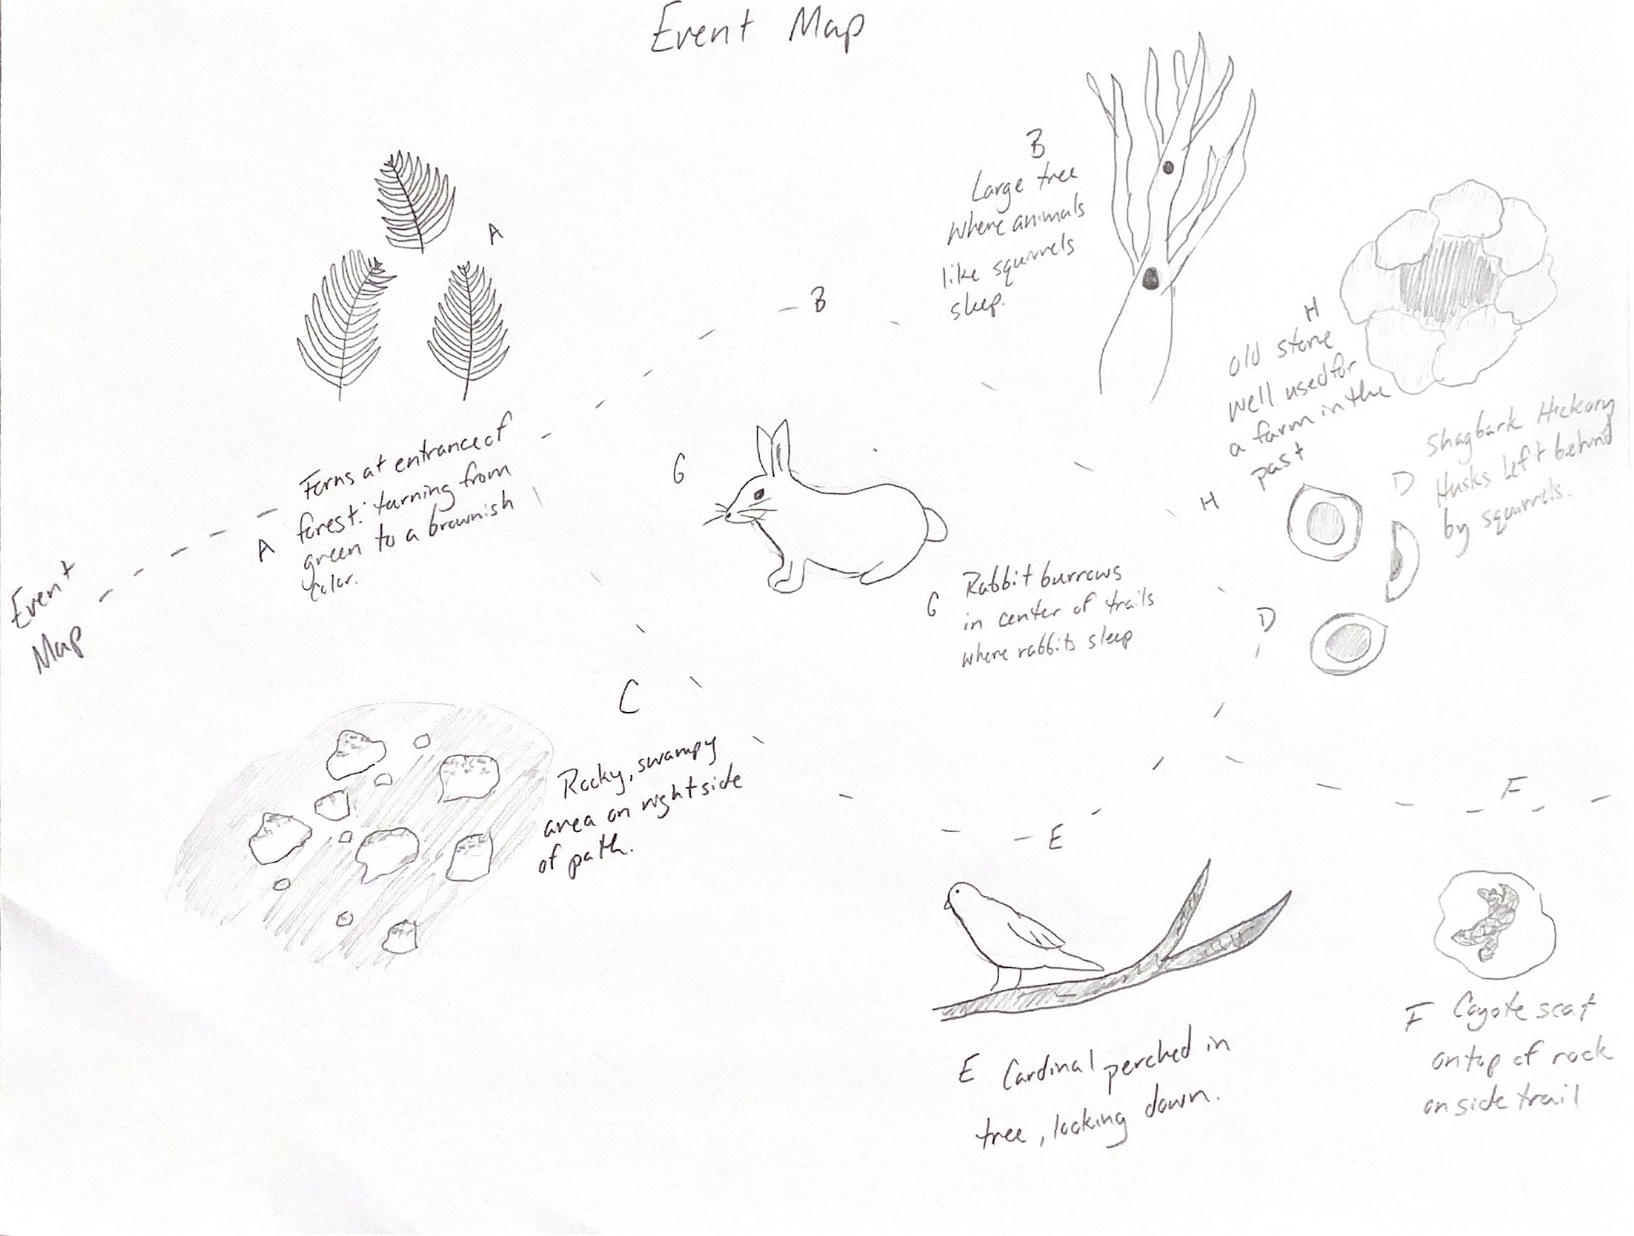 Event Map
B
Large tree
where animals
like squirrels
sleep.
A
B
H
old stone
well used for
a farm in the
past
Ferns at entrance of
forest: turning from
green to a brownish
color.
A
G
H
D
Shagbark Hickory
Husks left behind
by squirrels.
D
Event
Map
G Rabbit burrows
in center of trails
where rabbits sleep
C
Rocky, swampy
area on right side
of path.
E
F
E Cardinal perched in
tree, looking down.
F Coyote scat
on top of rock
on side trail